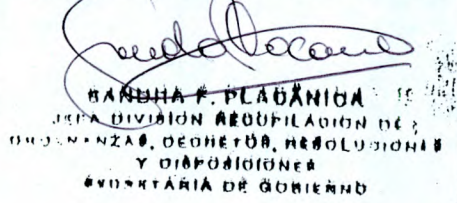 SANDRA F. PLADÁNICA
JEFA DIVISIÓN RECOPILACIÓN DE
ORDENANZAS, DECRETOS, RESOLUCIONES
Y DISPOSICIONES
SECRETARÍA DE GOBIERNO